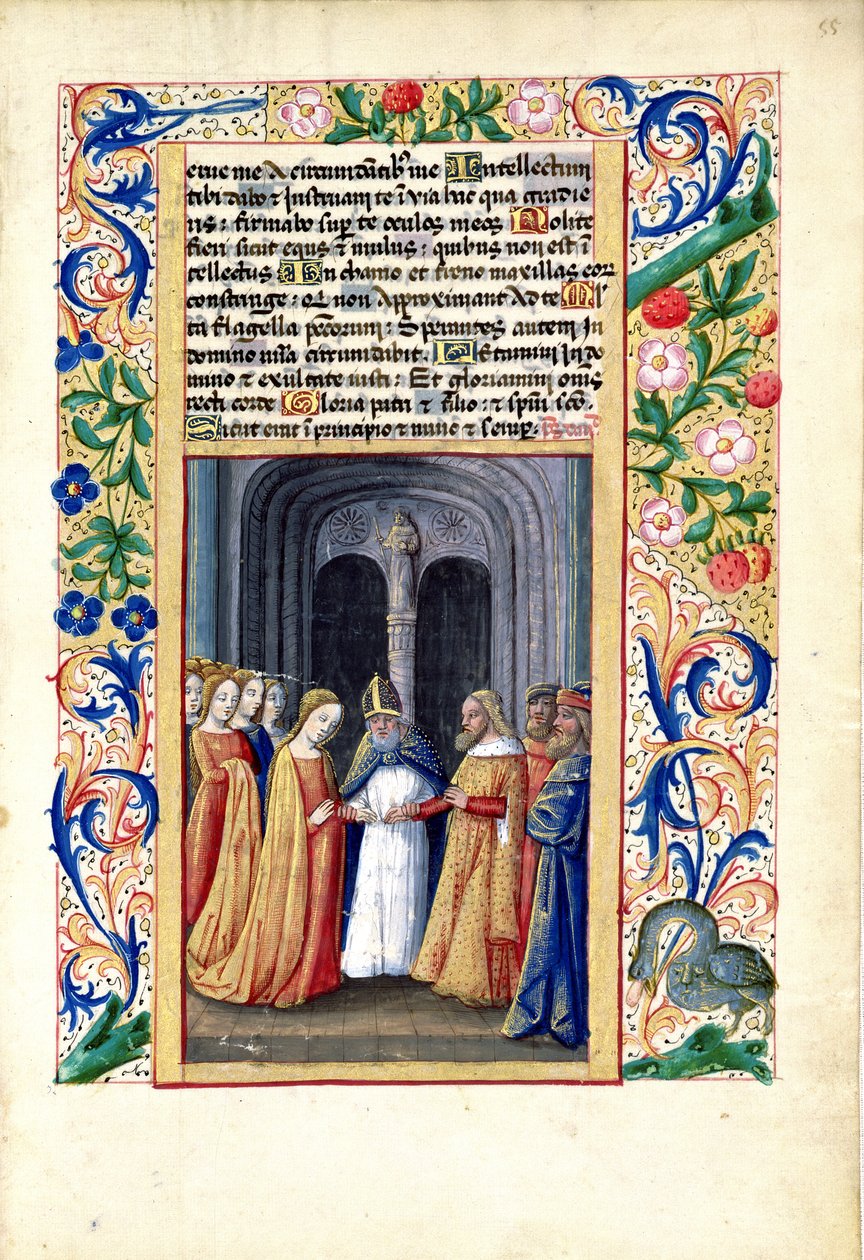 55
erue me A circundātibꝰ me Intellectum
tibi dabo ⁊ Instruam te ī via hac qua gradie
ris : firmabo sup̄ te oculos meos Nolite
fieri sicut equs ⁊ mulus : quibus non est ī
tellectus In chamo et freno maxillas eoꝝ
constringe : q̄ non Approximant Ad te Ml̄
ta flagella pccorum : Sperantes autem In
domino mīa circundabit . Letamini In do
mino ⁊ exultate iusti : Et gloriamini oms̄
recti corde Gloria patri ⁊ filio : ⁊ spūi sc̄o .
Sicut erat ī principio ⁊ nunc ⁊ semper .